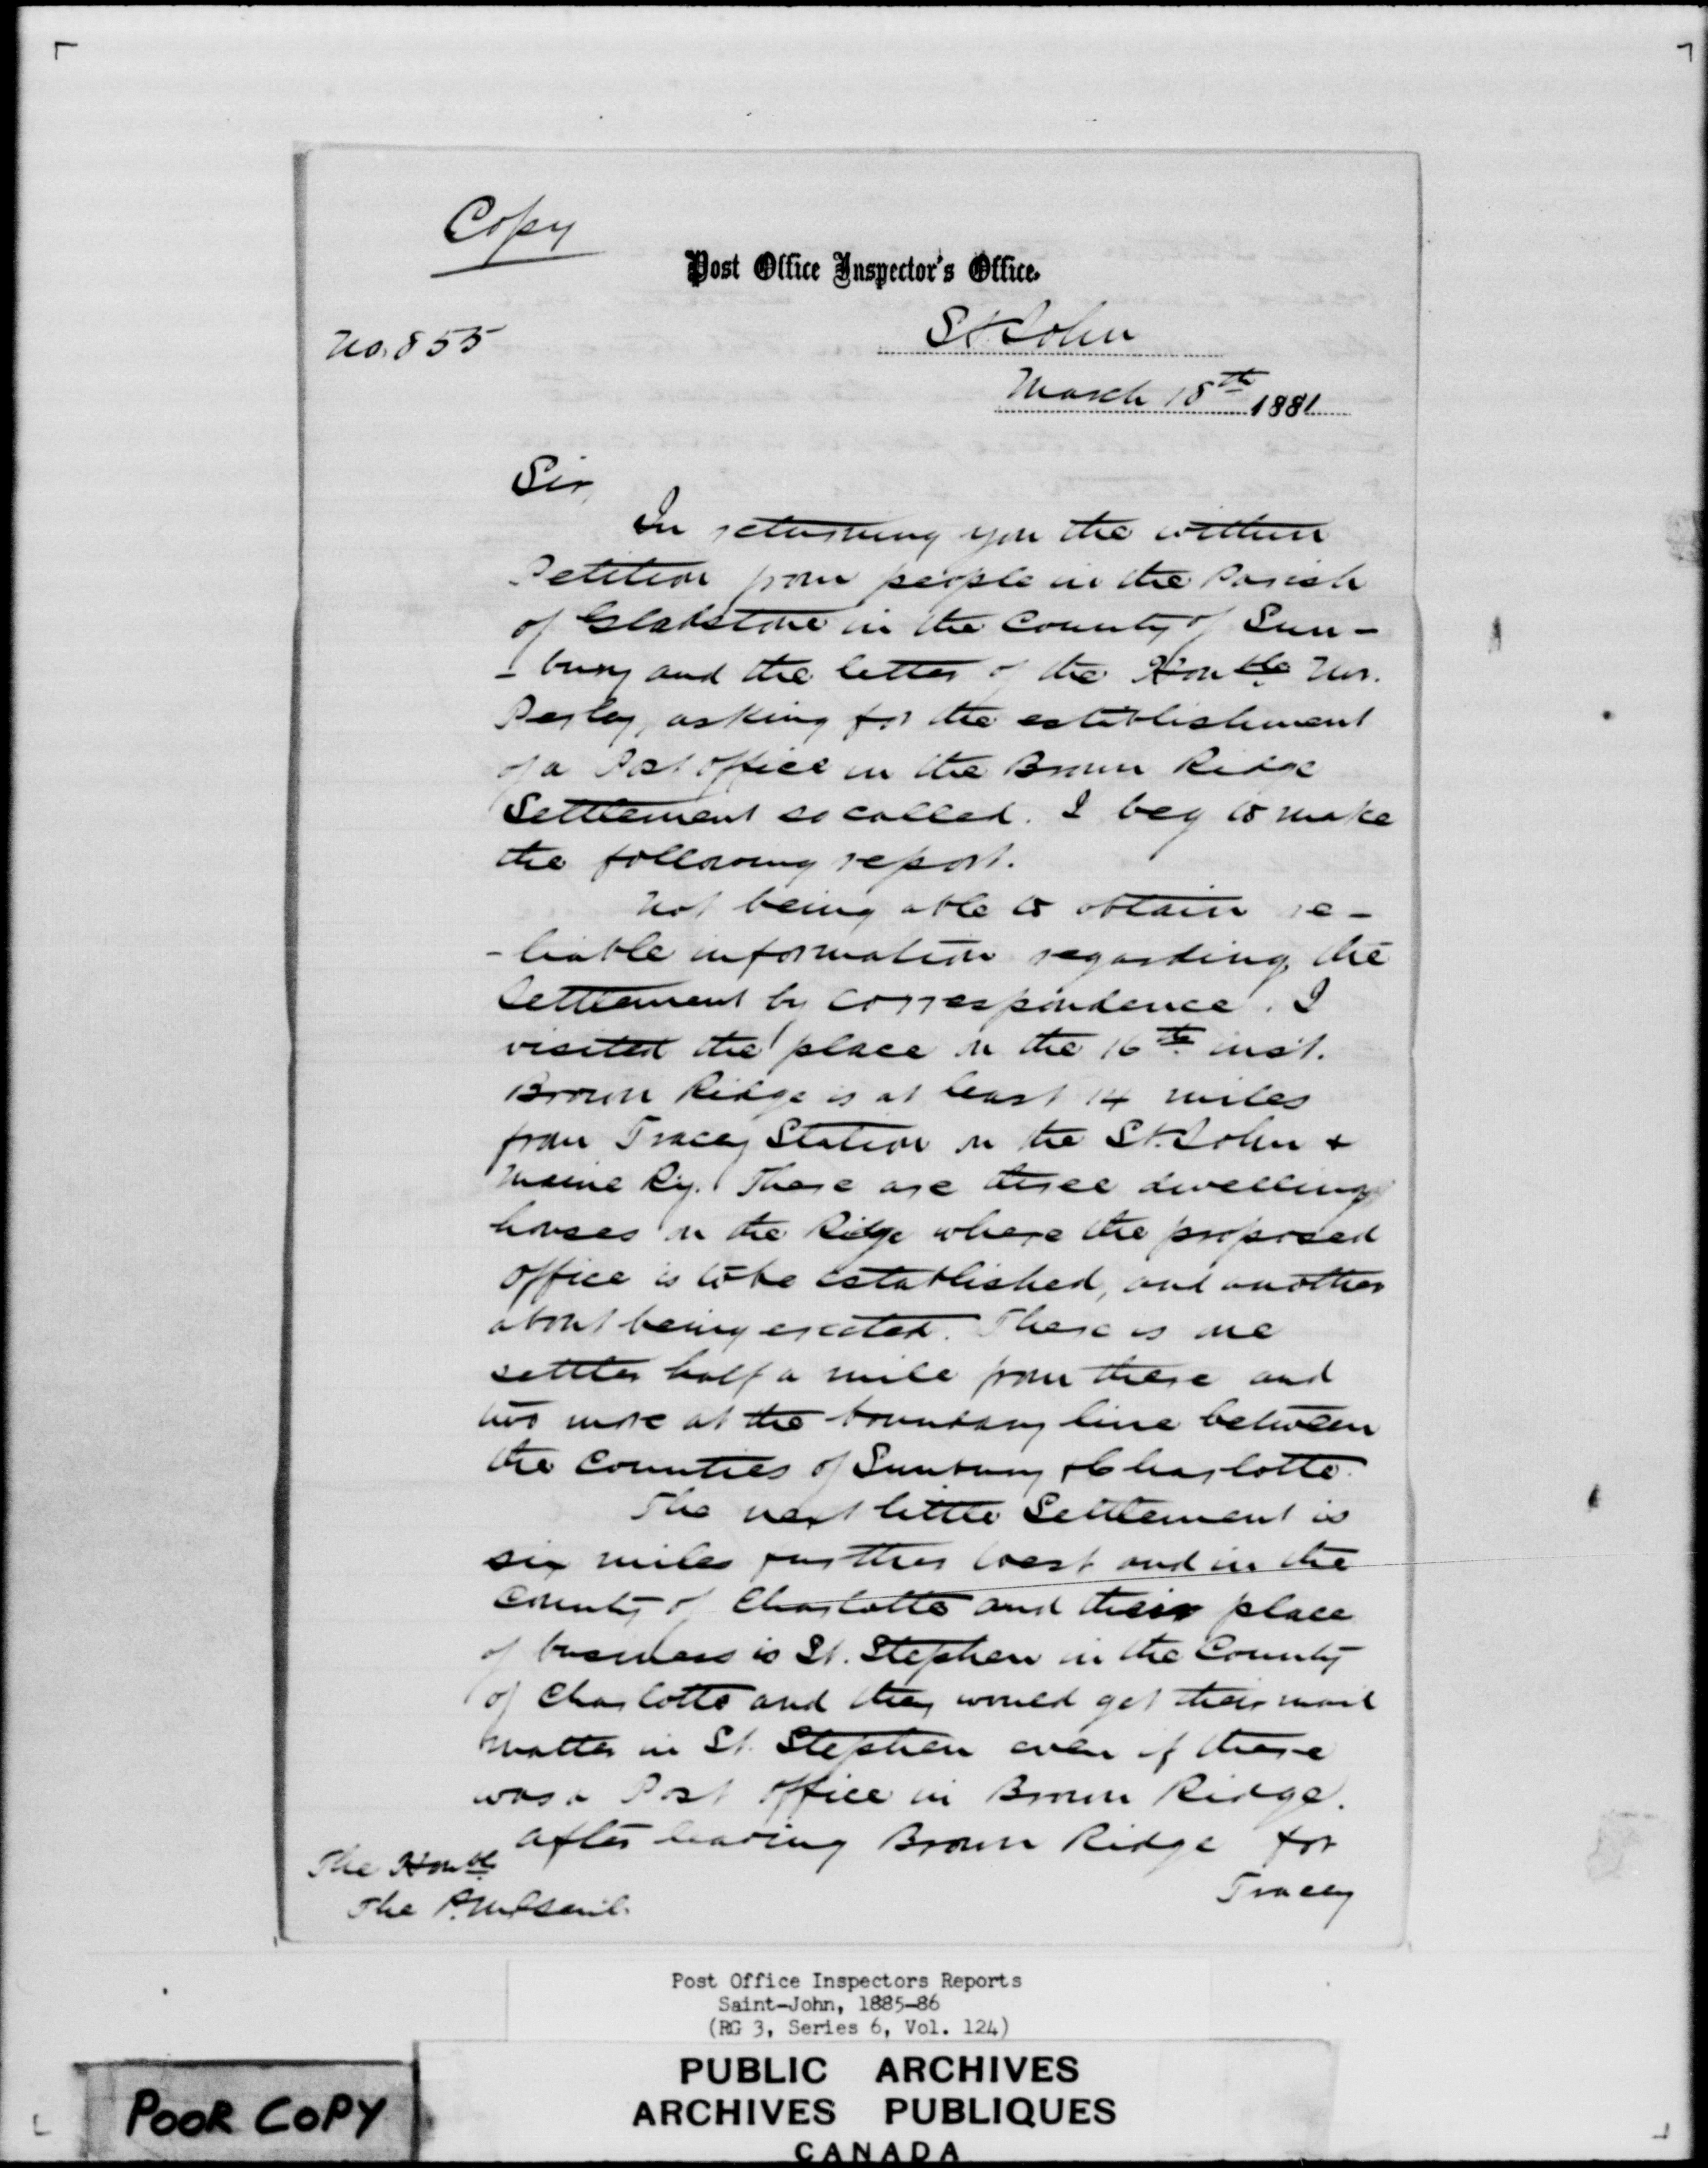 Copy
Post Office Inspector's Office.
No. 855
St. John
March 18th 1881
Sir,
In returning you the within
Petition from people in the Parish
of Gladstone in the County of Sun-
-bury and the letter of the Honble Mr.
Perley, asking for the establishment
of a Post Office in the Brown Ridge
Settlement so called. I beg to make
the following report.
Not being able to obtain re-
-liable information regarding the
Settlement by correspondence. I
visited the place on the 16th inst.
Brown Ridge is at least 14 miles
from Tracey Station on the St. John &
Maine Ry. There are three dwelling
houses on the Ridge where the proposed
office is to be established, and another
about being erected. There is one
settler half a mile from there and
two more at the boundary line between
the Counties of Sunbury & Charlotte.
The next little Settlement is
six miles further West and in the
County of Charlotte and their place
of business is St. Stephen in the County
of Charlotte and they would get their mail
matter in St. Stephen even if there
was a Post Office in Brown Ridge.
After leaving Brown Ridge for
Tracey
The Honble
The P.M. Genl.
Post Office Inspectors Reports
Saint-John, 1885-86
(RG 3, Series 6, Vol. 124)
PUBLIC ARCHIVES
ARCHIVES PUBLIQUES
CANADA
POOR COPY